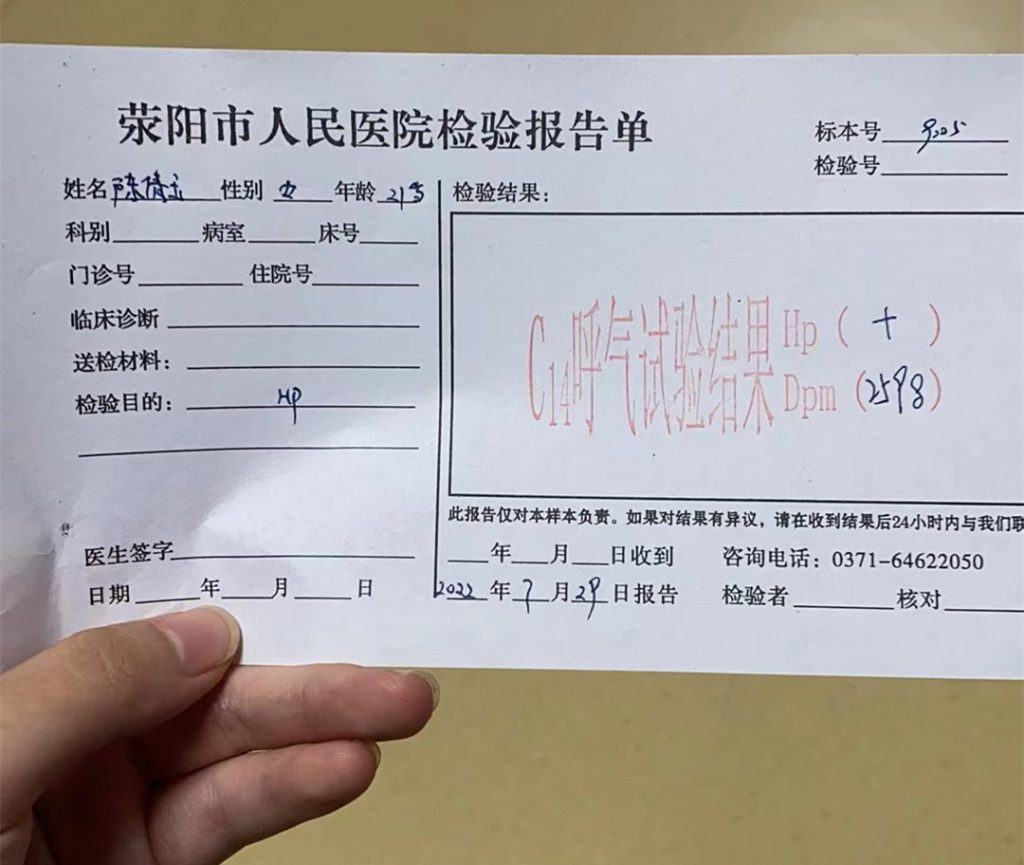 荥阳市人民医院检验报告单
标本号 9205
检验号
姓名 陈倩 性别 女 年龄 21岁
科别 病室 床号
门诊号 住院号
临床诊断
送检材料：
检验目的： HP
医生签字
日期 年 月 日
检验结果：
C14呼气试验结果 Hp（ + ）
Dpm（2598）
此报告仅对本样本负责。如果对结果有异议，请在收到结果后24小时内与我们联
年 月 日收到 咨询电话：0371-64622050
2022 年 7 月 29 日报告 检验者 核对